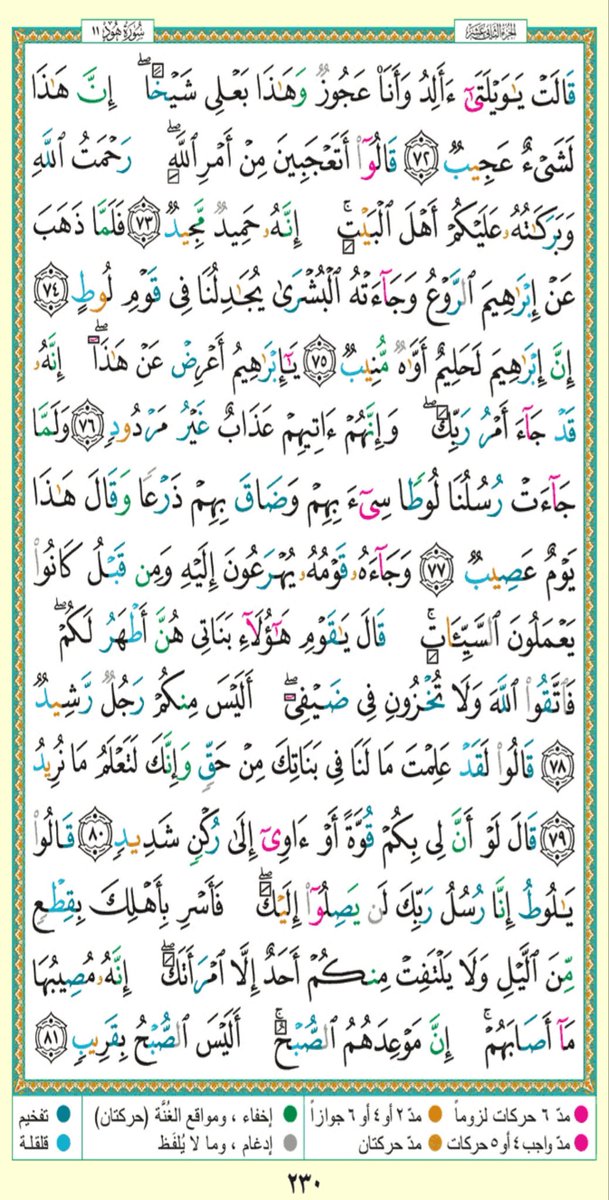 سُورَةُ هُودٍ ١١ الجُزءُ الثَّانِي عَشَرَ
قَالَتْ يَٰوَيْلَتَىٰٓ ءَأَلِدُ وَأَنَا۠ عَجُوزٌ وَهَٰذَا بَعْلِى شَيْخًا ۖ إِنَّ هَٰذَا
لَشَىْءٌ عَجِيبٌ ٧٢ قَالُوٓا۟ أَتَعْجَبِينَ مِنْ أَمْرِ ٱللَّهِ ۖ رَحْمَتُ ٱللَّهِ
وَبَرَكَٰتُهُۥ عَلَيْكُمْ أَهْلَ ٱلْبَيْتِ ۚ إِنَّهُۥ حَمِيدٌ مَّجِيدٌ ٧٣ فَلَمَّا ذَهَبَ
عَنْ إِبْرَٰهِيمَ ٱلرَّوْعُ وَجَآءَتْهُ ٱلْبُشْرَىٰ يُجَٰدِلُنَا فِى قَوْمِ لُوطٍ ٧٤
إِنَّ إِبْرَٰهِيمَ لَحَلِيمٌ أَوَّٰهٌ مُّنِيبٌ ٧٥ يَٰٓإِبْرَٰهِيمُ أَعْرِضْ عَنْ هَٰذَآ ۖ إِنَّهُۥ
قَدْ جَآءَ أَمْرُ رَبِّكَ ۖ وَإِنَّهُمْ ءَاتِيهِمْ عَذَابٌ غَيْرُ مَرْدُودٍ ٧٦ وَلَمَّا
جَآءَتْ رُسُلُنَا لُوطًا سِىٓءَ بِهِمْ وَضَاقَ بِهِمْ ذَرْعًا وَقَالَ هَٰذَا
يَوْمٌ عَصِيبٌ ٧٧ وَجَآءَهُۥ قَوْمُهُۥ يُهْرَعُونَ إِلَيْهِ وَمِن قَبْلُ كَانُوا۟
يَعْمَلُونَ ٱلسَّيِّـَٔاتِ ۚ قَالَ يَٰقَوْمِ هَٰٓؤُلَآءِ بَنَاتِى هُنَّ أَطْهَرُ لَكُمْ ۖ
فَٱتَّقُوا۟ ٱللَّهَ وَلَا تُخْزُونِ فِى ضَيْفِىٓ ۖ أَلَيْسَ مِنكُمْ رَجُلٌ رَّشِيدٌ
٧٨ قَالُوا۟ لَقَدْ عَلِمْتَ مَا لَنَا فِى بَنَاتِكَ مِنْ حَقٍّ وَإِنَّكَ لَتَعْلَمُ مَا نُرِيدُ
٧٩ قَالَ لَوْ أَنَّ لِى بِكُمْ قُوَّةً أَوْ ءَاوِىٓ إِلَىٰ رُكْنٍ شَدِيدٍ ٨٠ قَالُوا۟
يَٰلُوطُ إِنَّا رُسُلُ رَبِّكَ لَن يَصِلُوٓا۟ إِلَيْكَ ۖ فَأَسْرِ بِأَهْلِكَ بِقِطْعٍ
مِّنَ ٱلَّيْلِ وَلَا يَلْتَفِتْ مِنكُمْ أَحَدٌ إِلَّا ٱمْرَأَتَكَ ۖ إِنَّهُۥ مُصِيبُهَا
مَآ أَصَابَهُمْ ۚ إِنَّ مَوْعِدَهُمُ ٱلصُّبْحُ ۚ أَلَيْسَ ٱلصُّبْحُ بِقَرِيبٍ ٨١
مدّ ٦ حركات لزوماً مدّ ٢ أو ٤ أو ٦ جوازاً إخفاء ، ومواقع الغُنَّة (حركتان) تفخيم
مدّ واجب ٤ أو ٥ حركات مدّ حركتان إدغام ، وما لا يُلفَظ قلقلة
٢٣٠